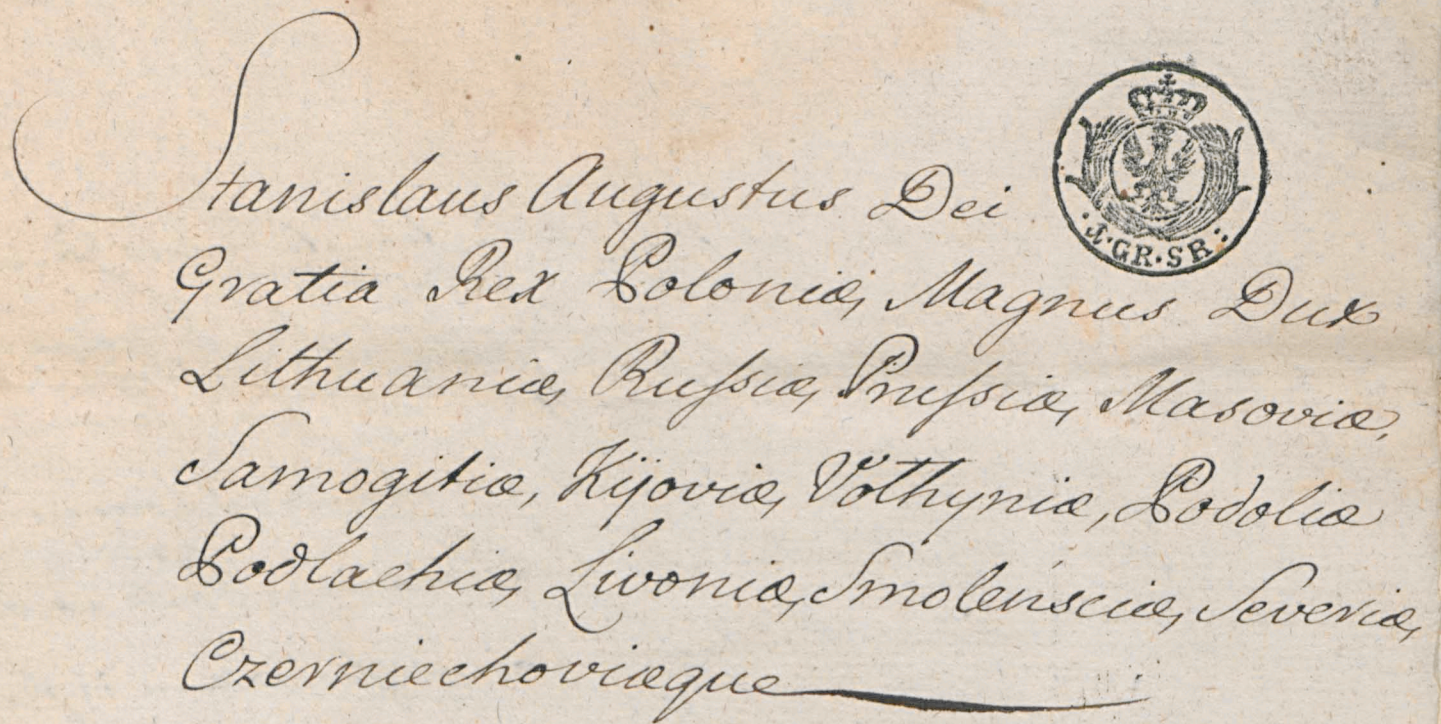 Stanislaus Augustus Dei
·X·GR·SR:
Gratia Rex Poloniæ, Magnus Dux
Lithuaniæ, Ruſsiæ, Pruſsiæ, Masoviæ,
Samogitiæ, Kijoviæ, Volhyniæ, Podoliæ
Podlachiæ, Livoniæ, Smolensciæ, Severiæ,
Czerniechoviæque